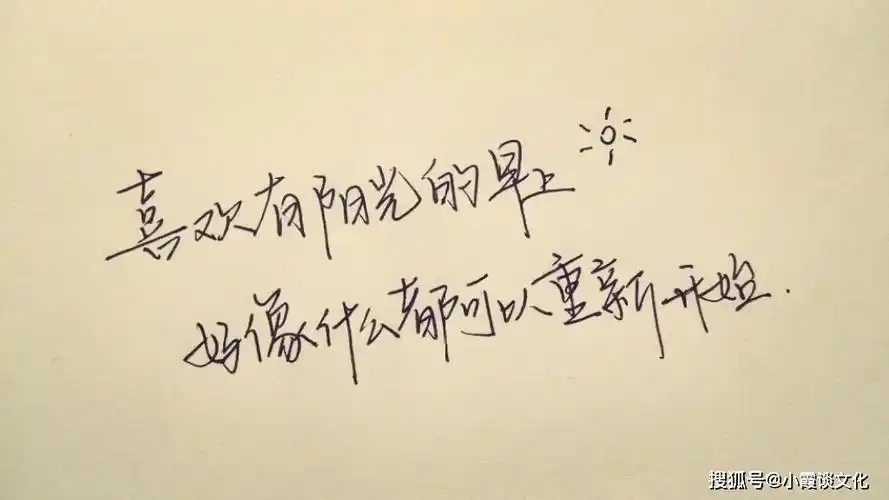 喜欢有阳光的早上
好像什么都可以重新开始.
搜狐号@小霞谈文化